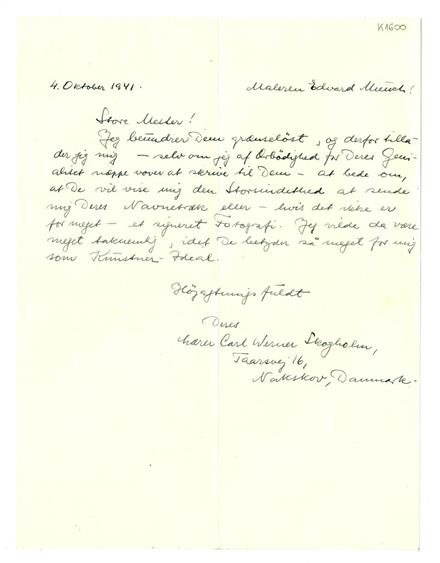 K1600
4. Oktober 1941. Maleren Edvard Munch!
Store Mester!
Jeg beundrer Dem grænseløst, og derfor tilla-
der jeg mig – selv om jeg af Ærbødighed for Deres Geni-
alitet næppe vover at skrive til Dem – at bede om,
at De vil vise mig den Storsindethed at sende
mig Deres Navnetræk eller – hvis det ikke er
for meget – et signeret Fotografi. Jeg vilde da være
meget taknemlig, idet De betyder så meget for mig
som Kunstner-Ideal.
Højagtningsfuldt
Deres
Lærer Carl Werner Skogholm,
Taarsvej 16,
Nakskov, Danmark.